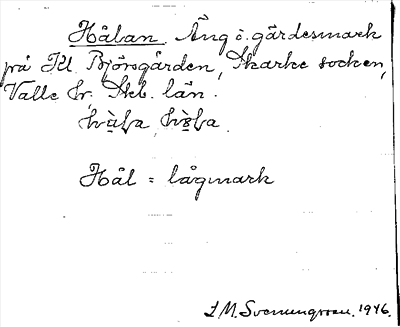 Hålan. Äng i gärdesmark
på Kl. Björsgården, Skarke socken,
Valle hr, Skb. län.

Hål = lågmark
S. M. Svenungsson. 1946.